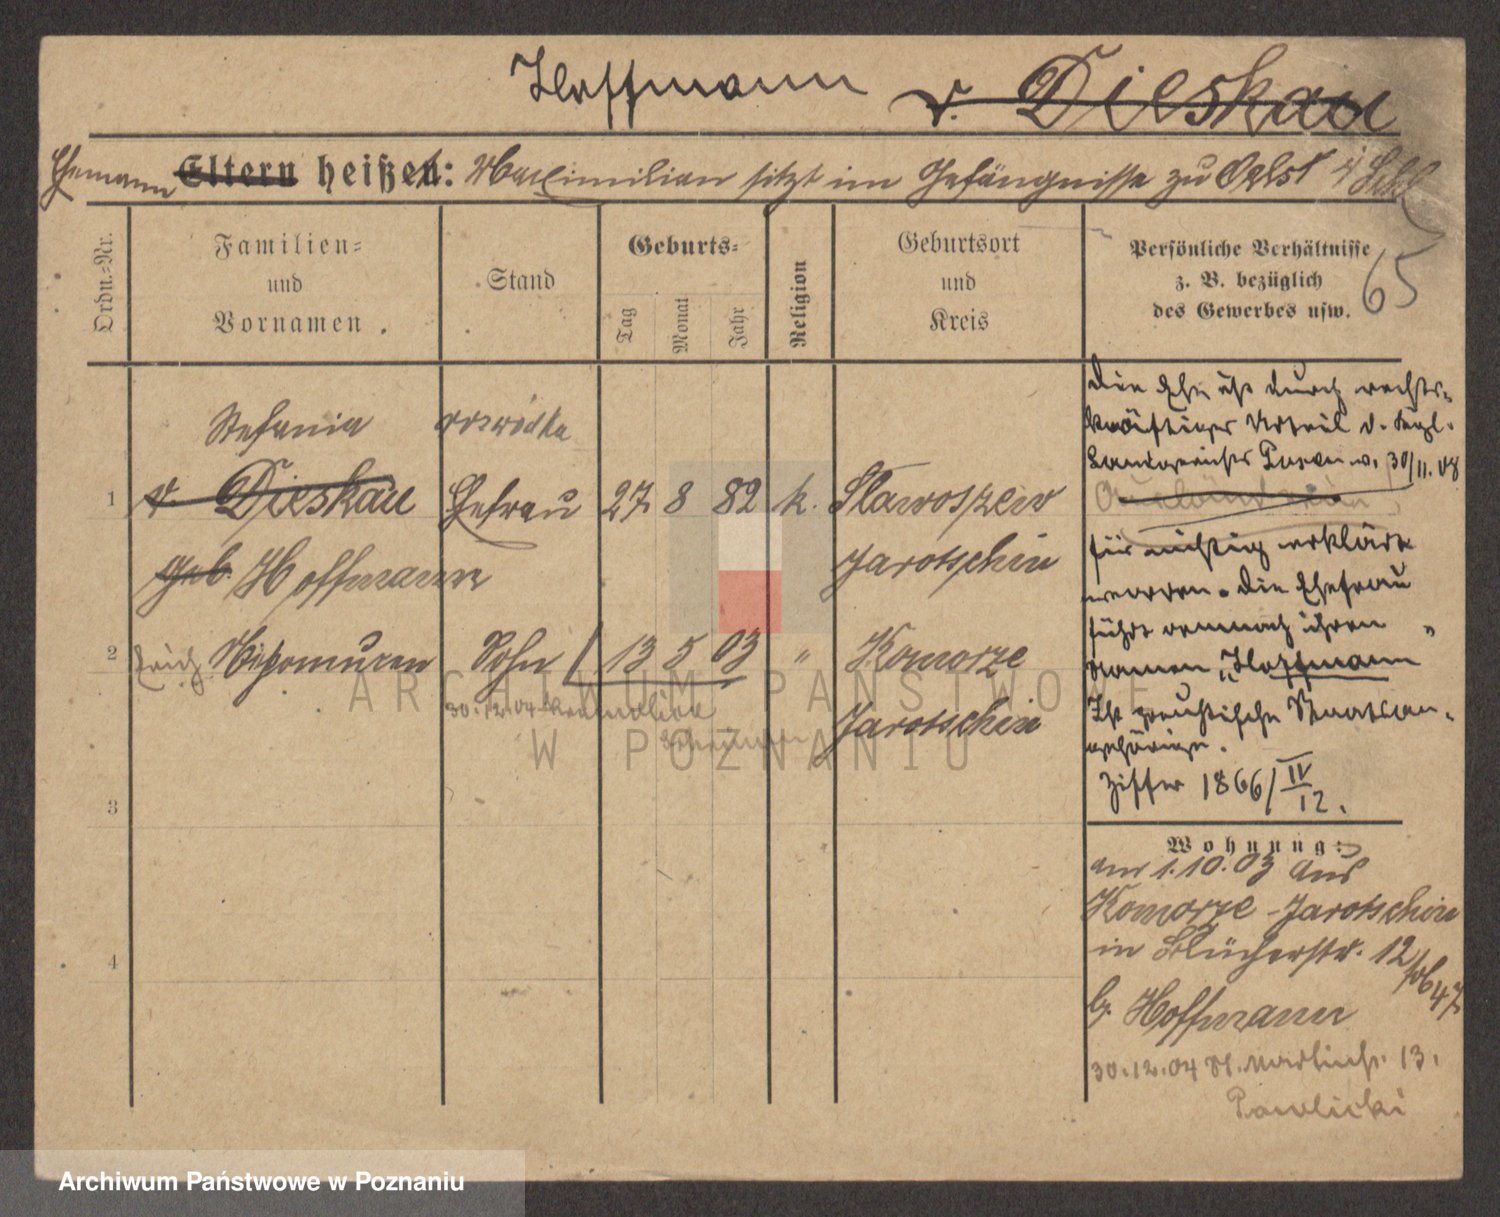 Hoffmann v. Dieskau
Ehemann Eltern heißen: Maximilian sitzt im Gefängnisse zu Oels i/Schl.
Ordn.=Nr.
Familien=
und
Vornamen.
Stand
Geburts=
Tag
Monat
Jahr
Religion
Geburtsort
und
Kreis
Persönliche Verhältnisse
z. B. bezüglich
des Gewerbes usw.
65
Stefania rozwódka
1 v. Dieskau Ehefrau 27 8 82 k. Slawoszew
geb. Hoffmann Jarotschin
2 Nepomucen Sohn 13 5 03 " Komorze
30.12.04
Jarotschin
3
4
Die Ehe ist durch rechts=
kräftiges Urteil d. Kgl.
Landgerichts Posen v. 30/11.08
für nichtig erklärt
worden. Die Ehefrau
führt demnach ihren
Namen „Hoffmann"
Ist preußische Staatsan=
gehörige.
Ziffer 1866/IV
12.
Wohnung:
am 1.10.03 aus
Komorze - Jarotschin
in Blücherstr. 12
b. Hoffmann
30.12.04 St. Martinstr. 13.
Pawlicki
ARCHIWUM PAŃSTWOWE
W POZNANIU
Archiwum Państwowe w Poznaniu